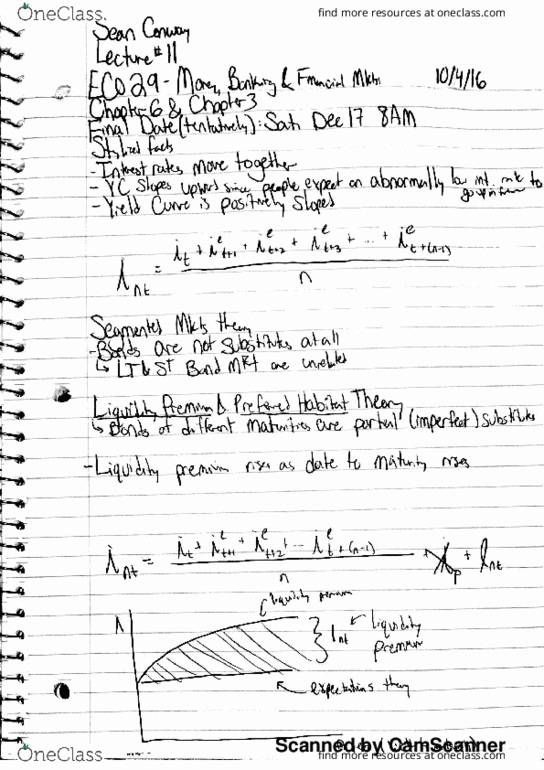 OneClass
find more resources at oneclass.com
Sean Conway
Lecture #11
ECO 29 - Money, Banking & Financial Mkts 10/4/16
Chapter 6 & Chapter 3
Final Date (tentatively): Sat, Dec 17 8AM
Stylized facts
- Interest rates move together
- YC Slopes upward since people expect an abnormally low int. rate to
go up in future
- Yield Curve is positively Slopes
i_nt = (i_t + i^e_t+1 + i^e_t+2 + i^e_t+3 + ... + i^e_t+(n-1)) / n
Segmented Mkts theory
- Bonds are not Substitutes at all
↳ LT & ST Bond MKT are unrelated
Liquidity Premium & Preferred Habitat Theory
↳ Bonds of different maturities are partial (imperfect) substitutes
- Liquidity premium rises as date to maturity rises
i_nt = (i_t + i^e_t+1 + i^e_t+2 + ... i^e_t+(n-1)) / n + l_nt
liquidity premium
l_nt ← liquidity
premium
← expectations theory
Scanned by CamScanner
OneClass
find more resources at oneclass.com